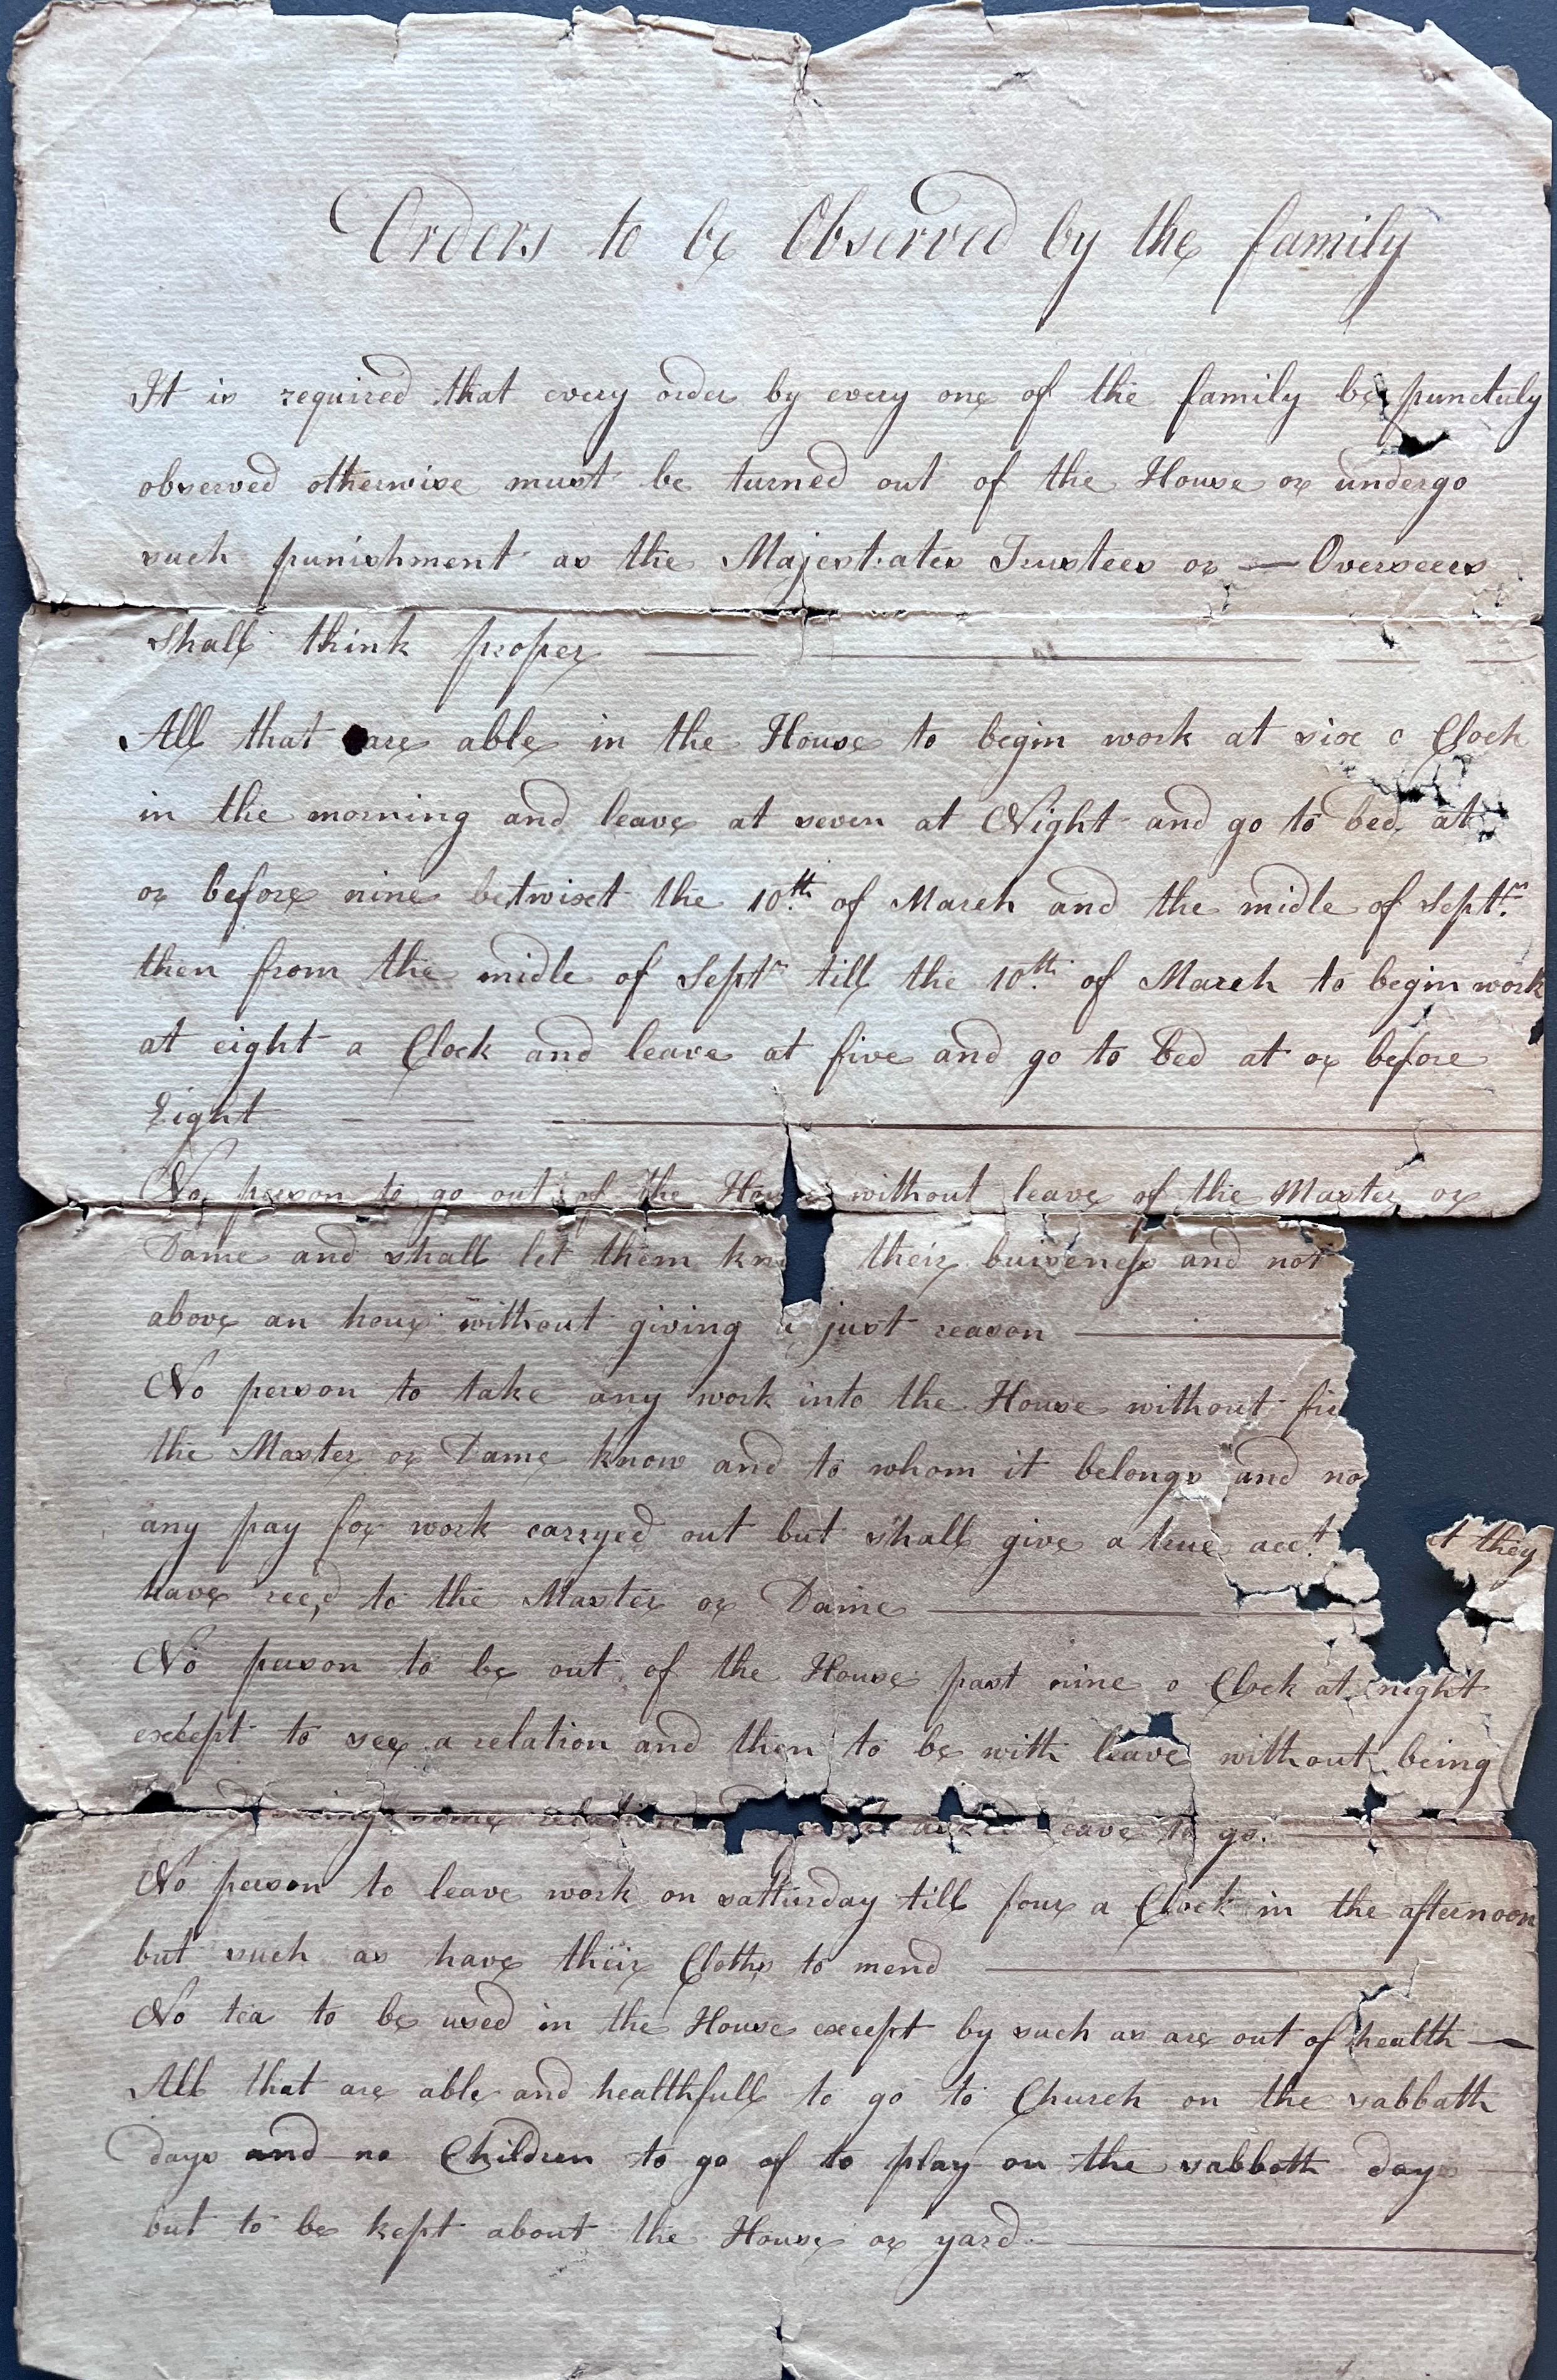 Orders to be Observed by the family
It is required that every order by every one of the family be punctuly
observed otherwise must be turned out of the House or undergo
such punishment as the Majestrates Trustees or — Overseers
shall think proper
All that are able in the House to begin work at six o Clock
in the morning and leave at seven at Night and go to bed at
or before nine betwixt the 10th of March and the midle of Septr
then from the midle of Septr till the 10th of March to begin work
at eight a Clock and leave at five and go to Bed at or before
Eight
No person to go out of the House without leave of the Master or
Dame and shall let them their buiseness and not
above an hour without giving a just reason
No person to take any work into the House without
the Master or Dame know and to whom it belongs and
any pay for work carryed out but shall give a true acct they
have recd to the Master or Dame
No person to be out of the House past nine o Clock at night
except to see a relation and then to be with leave without being
some leave to go.
No person to leave work on satturday till four a Clock in the afternoon
but such as have their Cloths to mend
No tea to be used in the House except by such as are out of health —
All that are able and healthfull to go to Church on the sabbath
days and no Children to go of to play on the sabboth days
but to be kept about the House or yard